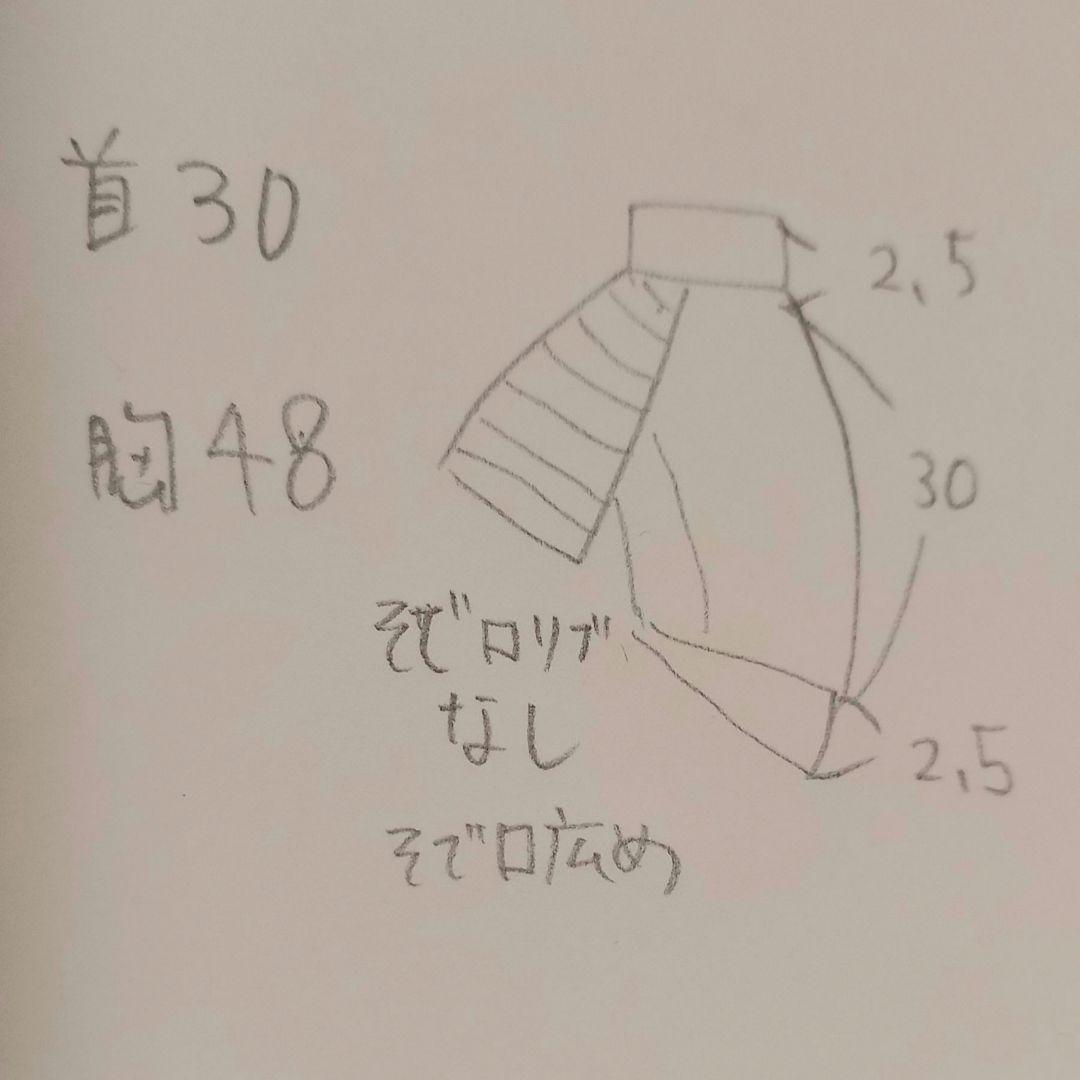 首30
胸48
2.5
30
2.5
そで口リブ
なし
そで口広め